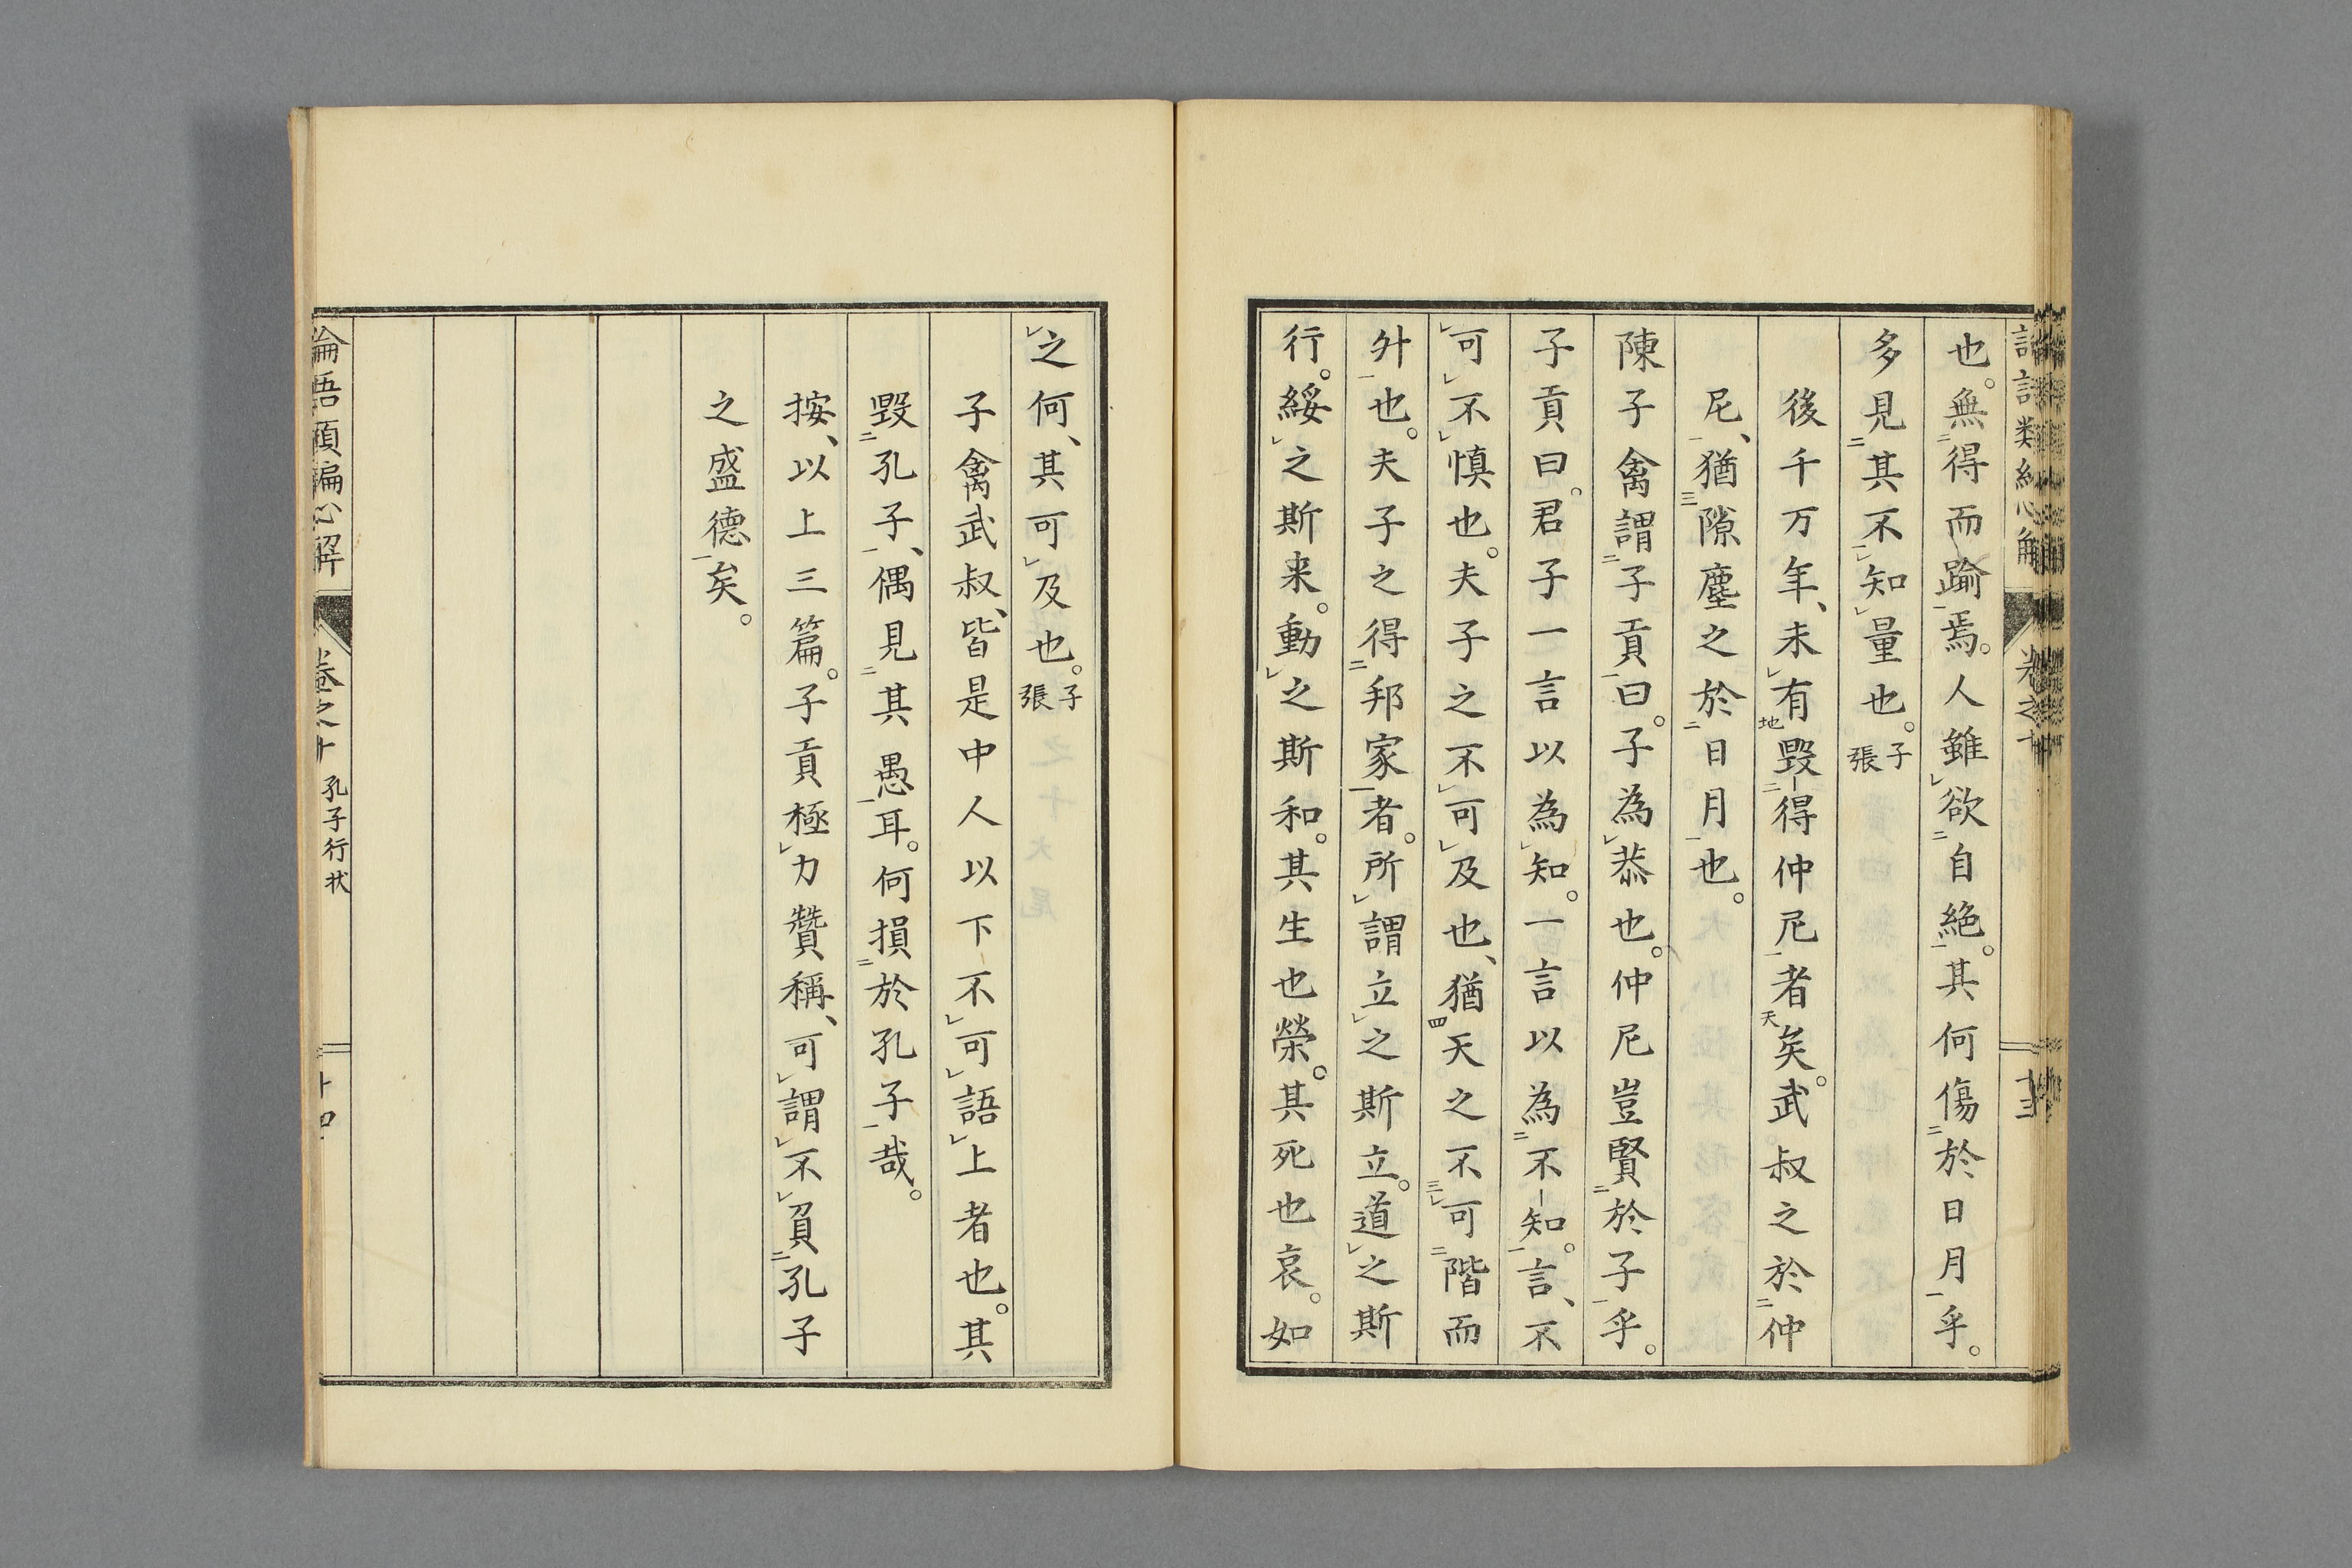 也。無得而踰焉。人雖欲自絶。其何傷於日月乎。
多見其不知量也。子張
後千万年、未有毀得仲尼者矣。武叔之於仲
尼、猶隙塵之於日月也。
陳子禽謂子貢曰。子為恭也。仲尼豈賢於子乎。
子貢曰。君子一言以為知。一言以為不知。言、不
可不慎也。夫子之不可及也、猶天之不可階而
升也。夫子之得邦家者。所謂立之斯立。道之斯
行。綏之斯来。動之斯和。其生也榮。其死也哀。如
之何、其可及也。子張
子禽武叔、皆是中人以下不可語上者也。其
毀孔子、偶見其愚耳。何損於孔子哉。
按、以上三篇。子貢極力贊稱、可謂不負孔子
之盛德矣。
論語類編心解 卷之十 孔子行状 十四